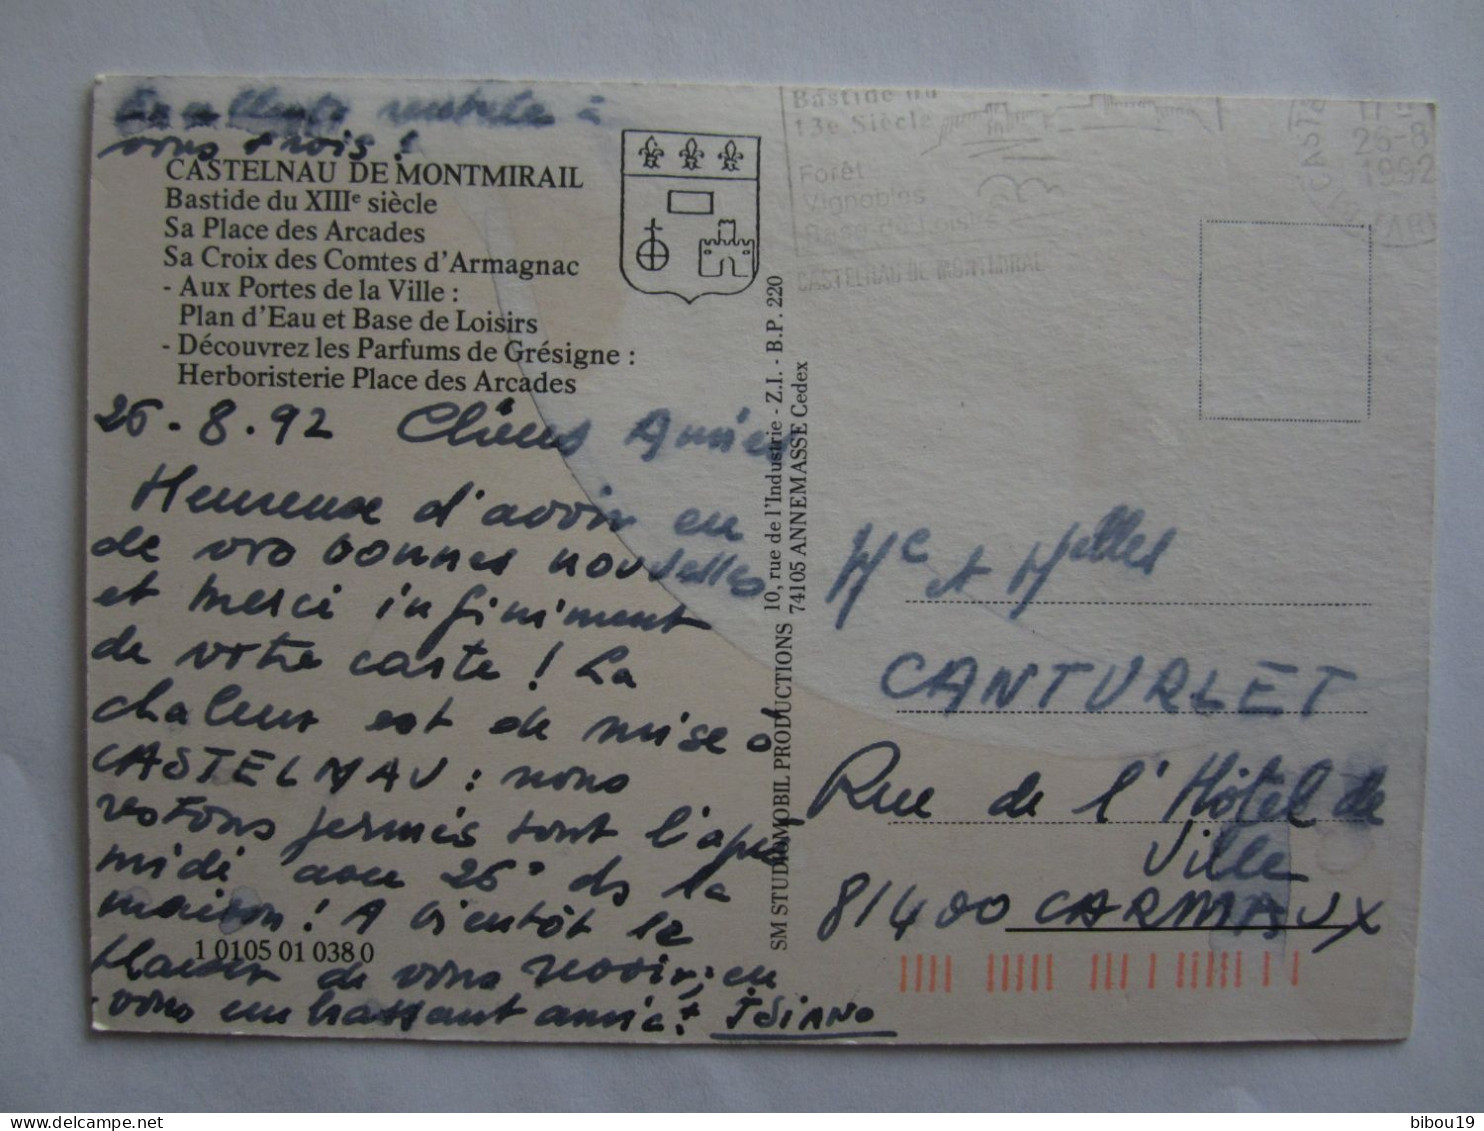 Excellente rentrée à
vous trois !
CASTELNAU DE MONTMIRAIL
Bastide du XIIIe siècle
Sa Place des Arcades
Sa Croix des Comtes d'Armagnac
- Aux Portes de la Ville :
Plan d'Eau et Base de Loisirs
- Découvrez les Parfums de Grésigne :
Herboristerie Place des Arcades
26.8.92 Chères Amies
Heureuse d'avoir eu
de vos bonnes nouvelles
et merci infiniment
de votre carte ! La
chaleur est de mise à
CASTELNAU : nous
restons fermés tout l'après
midi avec 26° ds la
maison ! A bientôt le
plaisir de vous revoir, en
vous embrassant amict.
1 0105 01 038 0
SM STUDIOMOBIL PRODUCTIONS 10, rue de l'Industrie - Z.I. - B.P. 220
74105 ANNEMASSE Cedex
Bastide du
13e Siècle
Forêt
Vignobles
Base de Loisirs
CASTELNAU DE MONTMIRAIL
26-8
1992
Me et Melles
CANTURLET
Rue de l'Hôtel de
Ville
81400 CARMAUX
bibou19